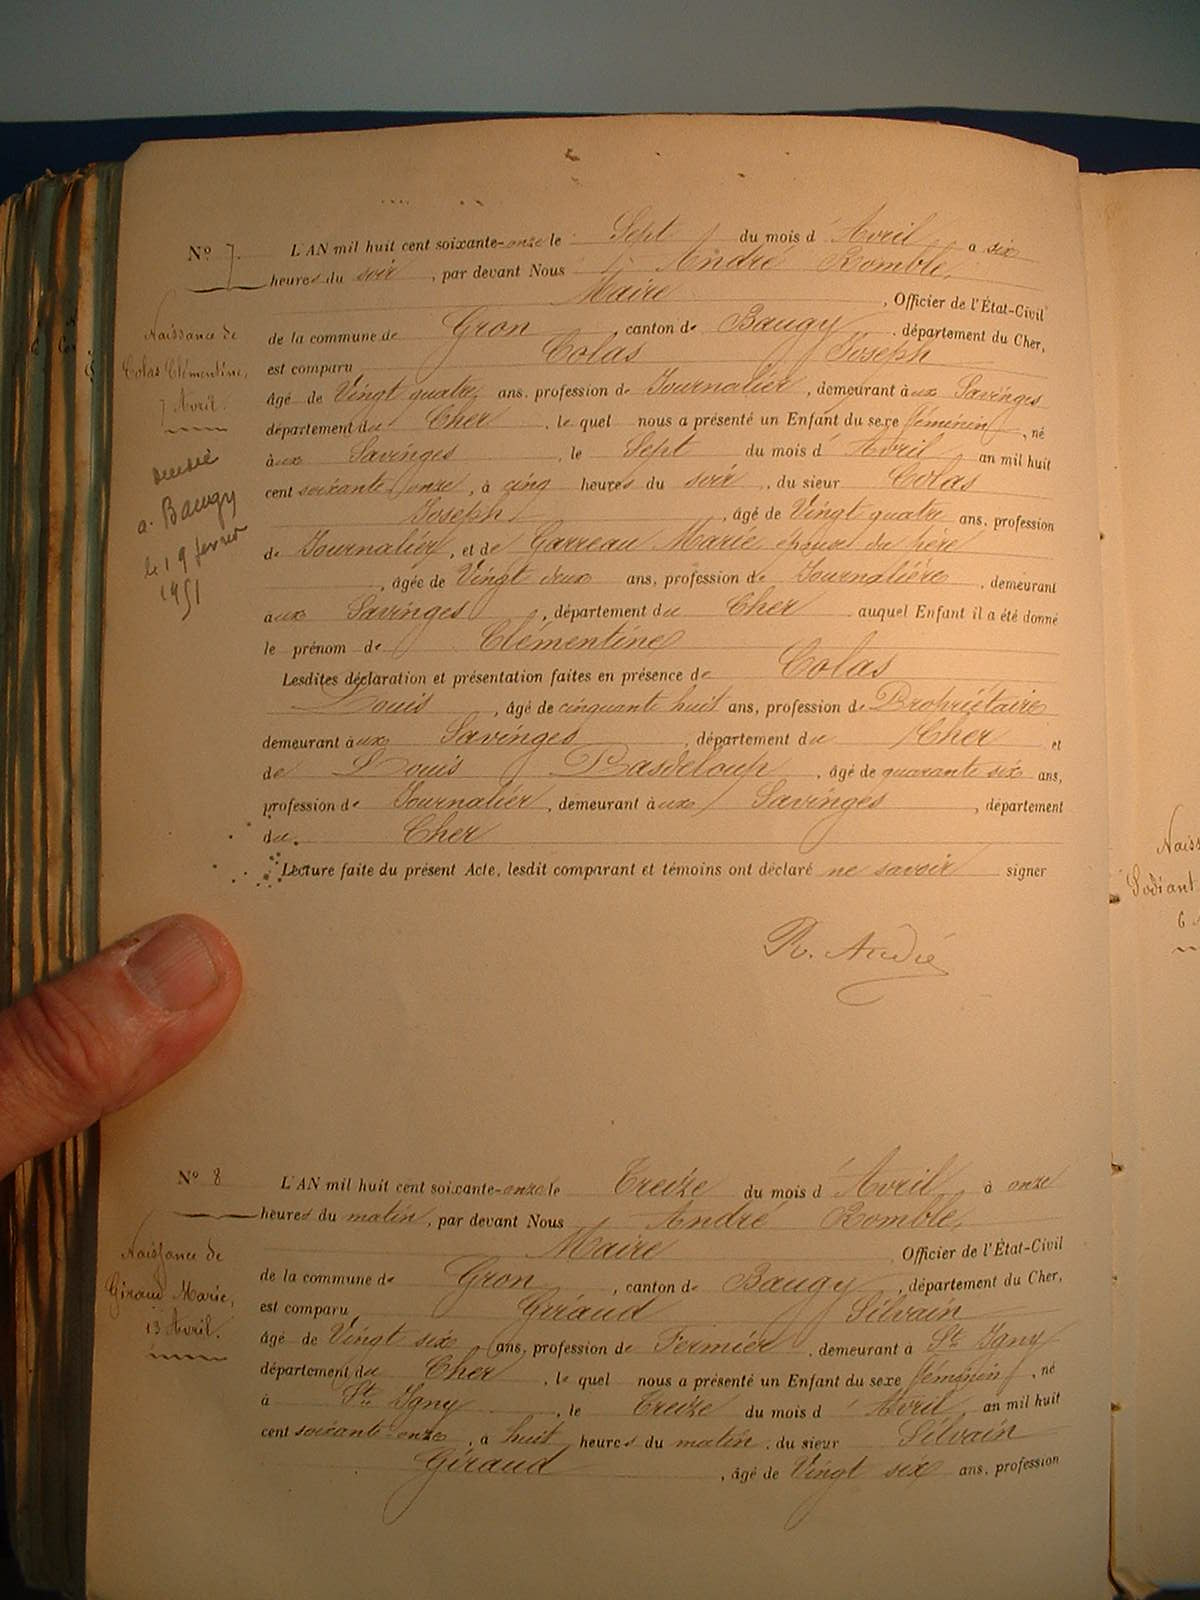 Nº 7.
L'AN mil huit cent soixante-onze le Sept du mois d'Avril a six
heures du soir, par devant Nous André Romble,
Maire, Officier de l'État-Civil
de la commune de Gron, canton de Baugy, département du Cher,
est comparu Colas Joseph
âgé de Vingt quatre ans, profession de Journalier, demeurant à aux Savinges
département du Cher, le quel nous a présenté un Enfant du sexe féminin, né
à aux Savinges le Sept du mois d'Avril an mil huit
cent soixante onze, à cinq heures du soir, du sieur Colas
Joseph, âgé de Vingt quatre ans, profession
de Journalier, et de Garreau Marie épouse du père
, âgée de Vingt deux ans, profession de Journalière, demeurant
aux Savinges, département du Cher auquel Enfant il a été donné
le prénom de Clémentine
Lesdites déclaration et présentation faites en présence de Colas
Louis, âgé de cinquante huit ans, profession de Propriétaire
demeurant à aux Savinges, département du Cher et
de Louis Pasdeloup, âgé de quarante six ans,
profession de Journalier, demeurant à aux Savinges, département
du Cher
Lecture faite du présent Acte, lesdit comparant et témoins ont déclaré ne savoir signer
R. André
Naissance de
Colas Clémentine,
7 Avril.
décédé
a Baugy
le 19 février
1951
Nº 8
L'AN mil huit cent soixante-onze le Treize du mois d'Avril à onze
heures du matin, par devant Nous André Romble,
Maire Officier de l'État-Civil
de la commune de Gron, canton de Baugy, département du Cher,
est comparu Giraud Silvain
âgé de Vingt six ans, profession de Fermier, demeurant à St Igny
département du Cher, le quel nous a présenté un Enfant du sexe féminin, né
à St Igny, le Treize du mois d'Avril an mil huit
cent soixante-onze, à huit heures du matin, du sieur Silvain
Giraud, âgé de Vingt six ans, profession
Naissance de
Giraud Marie,
13 Avril.
Naiss
Sodiant
6